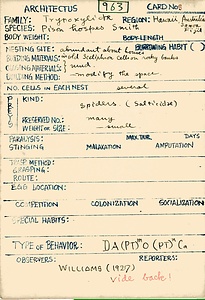 ARCHITECTUS 963 CARD No.
FAMILY: Trypoxylidae REGION: Hawaii Australia
SPECIES: Pison hospes Smith Samoa Fiji
BODY WEIGHT: BODY LENGTH
NESTING SITE: abundant about BURROWING HABIT ( )
BUILDING MATERIALS: old Sceliphron cells on rocky banks
CLOSING MATERIALS: mud
BUILDING METHOD: modif by the space.
NO. CELLS IN EACH NEST several
PREYS KIND: Spiders (Salticidae)
PRESERVED NO.: many
WEIGHT OR SIZE: small
PARALYSIS: DAYS
STINGING MALAXATION AMPUTATION
TRSP. METHOD:
GRASPING:
ROUTE:
EGG LOCATION:
COMPETITION COLONIZATION SOCIALIZATION
SPECIAL HABITS:
TYPE OF BEHAVIOR:
OBSERVERS: REPORTERS:
WILLIAMS (1927)
vide back!